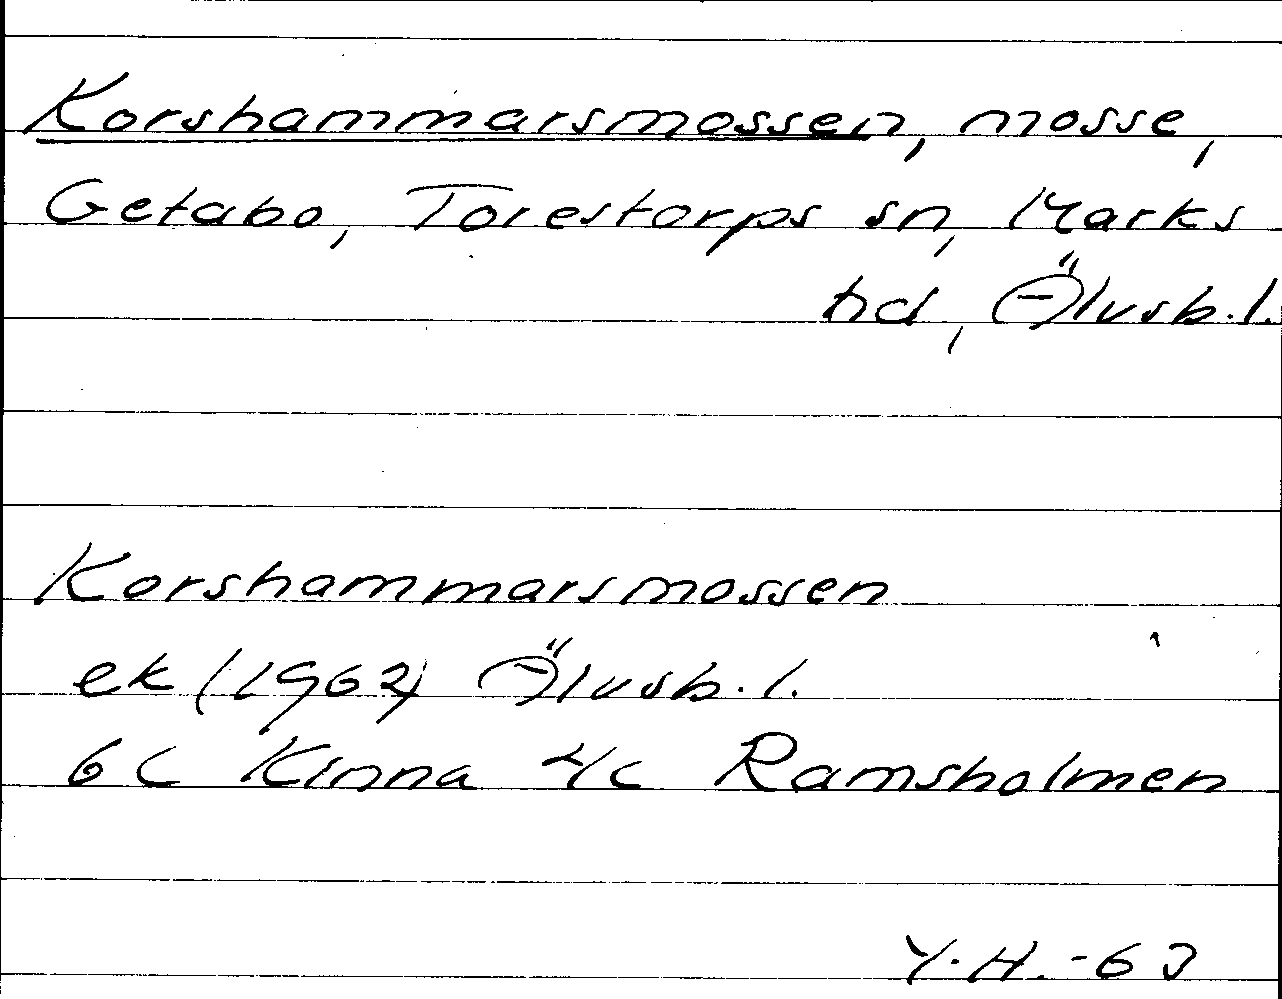 Korshammarsmossen, mosse,
Getabo, Torestorps sn, Marks
hd, Älvsb. l.
Korshammarsmossen
ek (1962) Älvsb. l.
6 C Kinna 4 c Ramsholmen
Y. H. -63